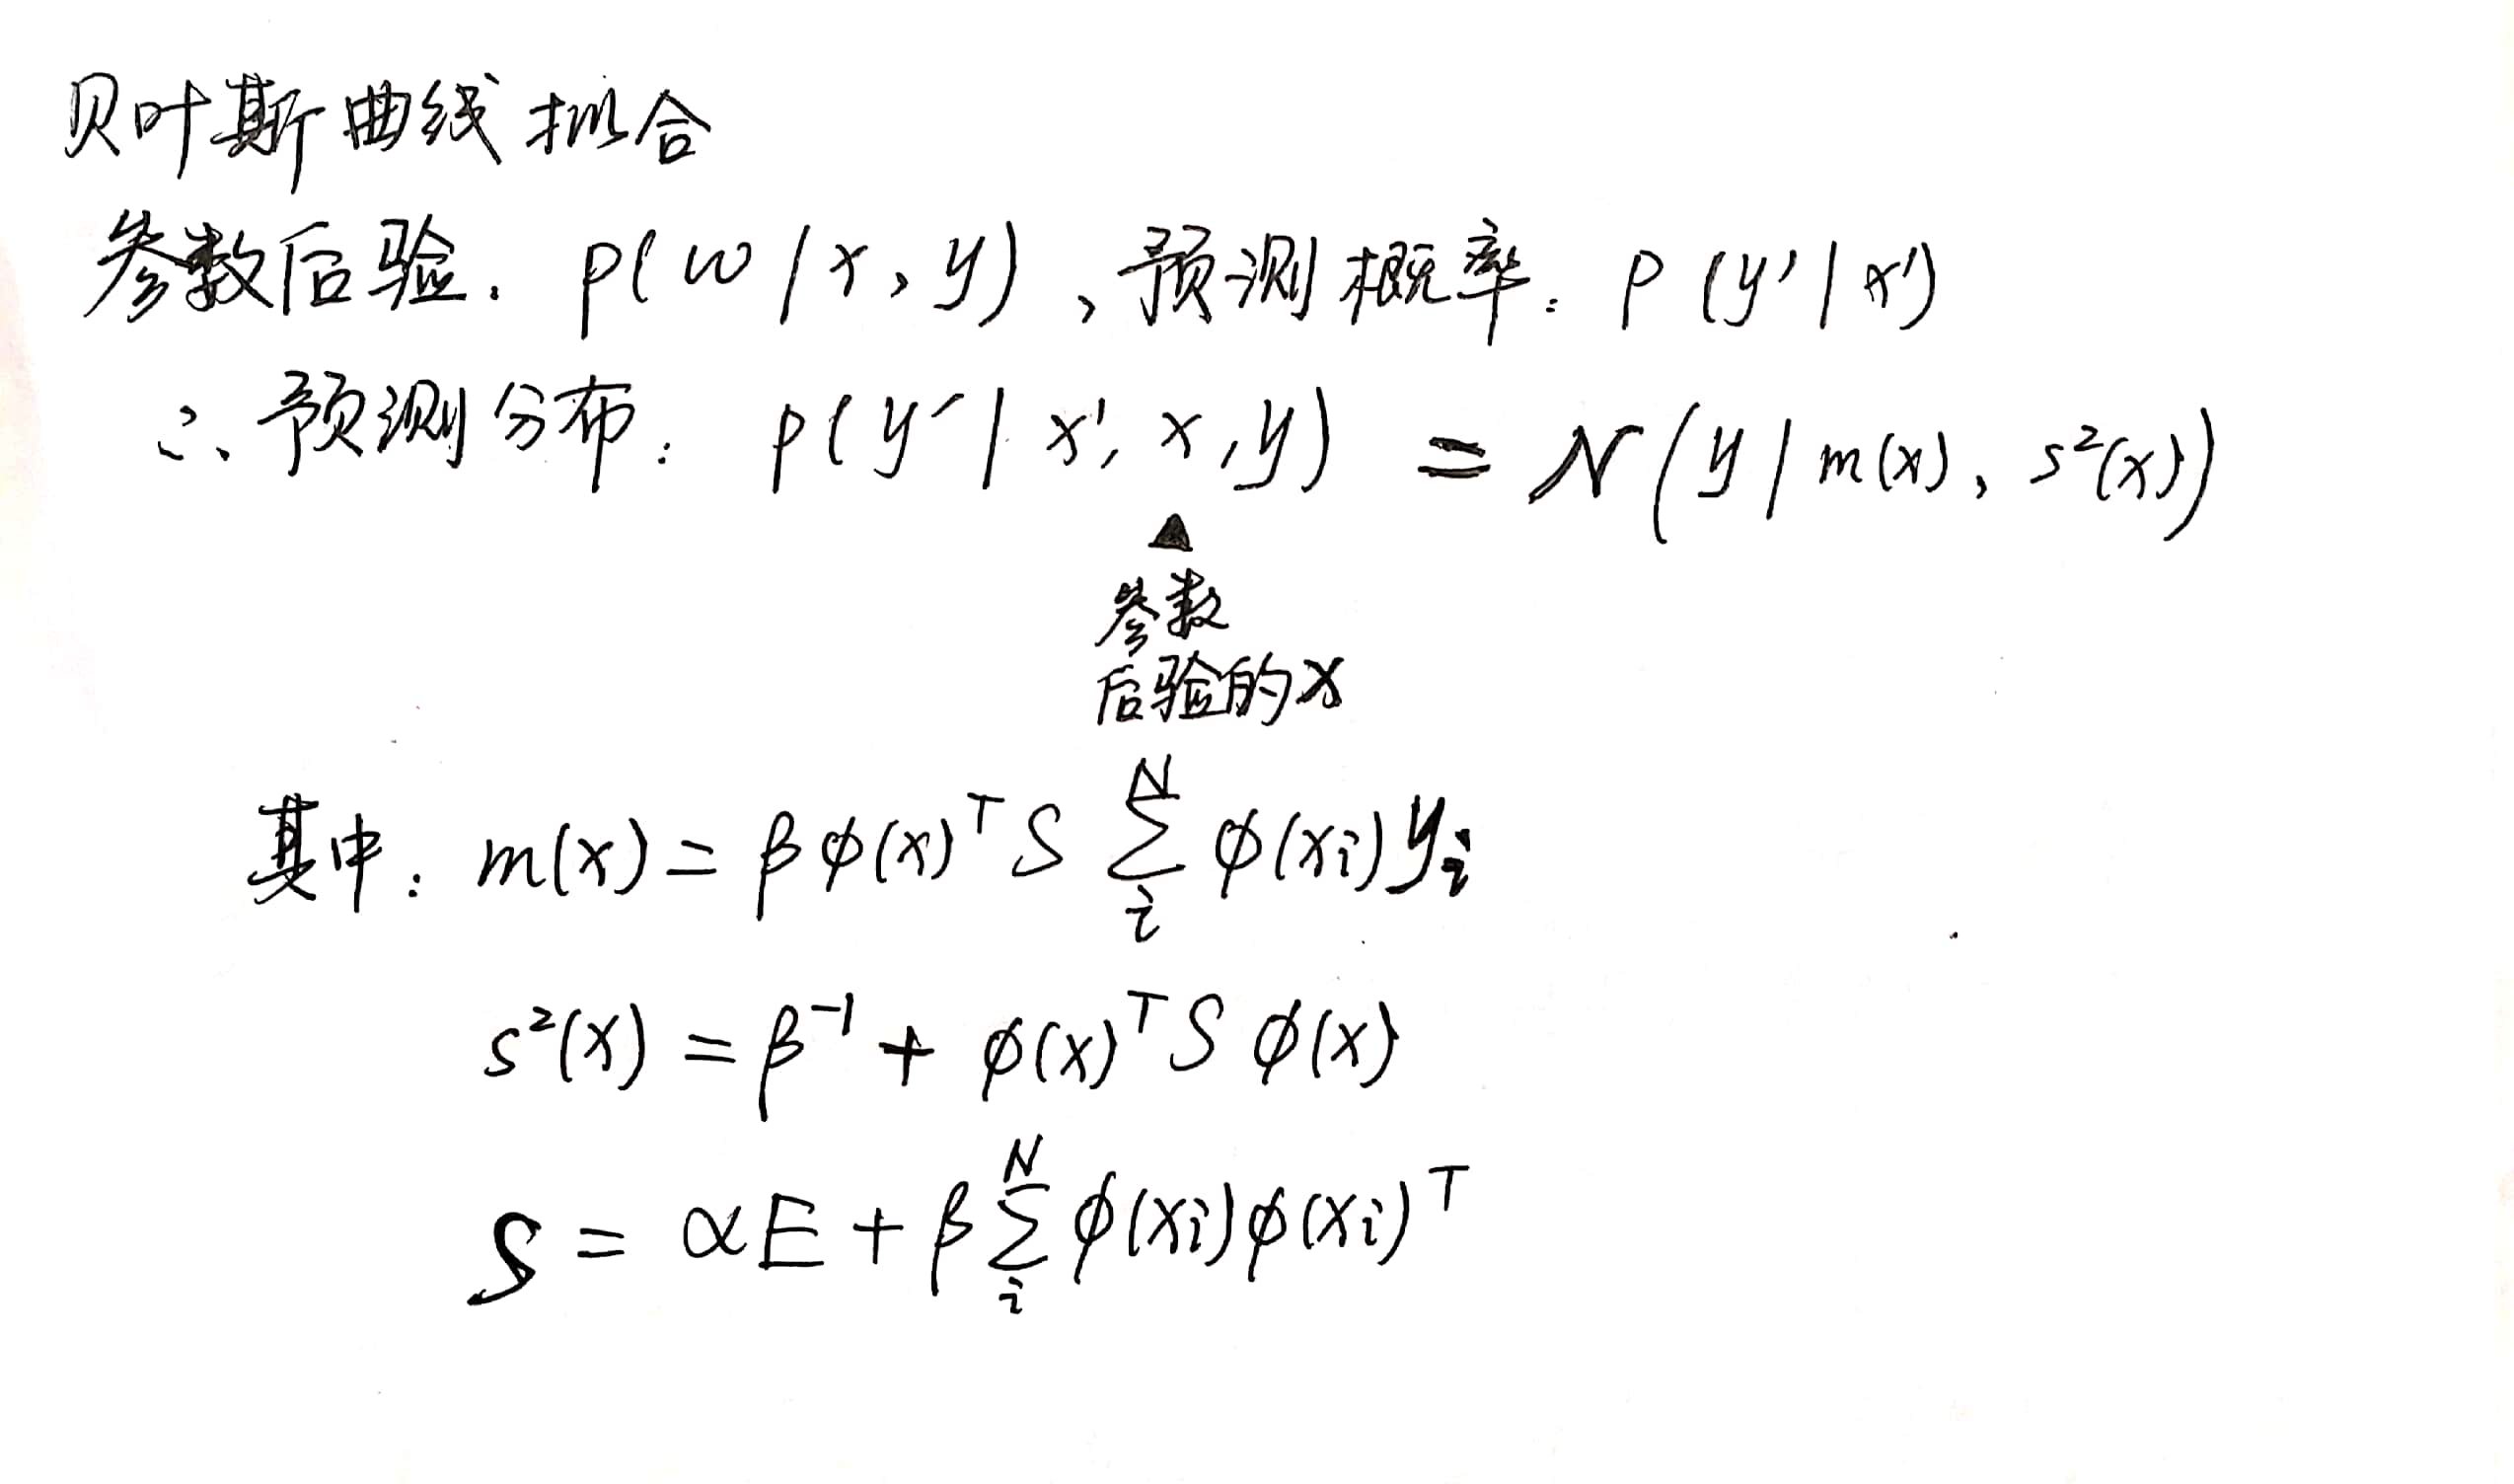 贝叶斯曲线拟合
参数后验: p(w|x,y), 预测概率: p(y'|x')
∴ 预测分布: p(y'|x', x, y) = N(y|m(x), s²(x))
▲
参数
后验的x
其中: m(x) = βϕ(x)ᵀ S ∑ᵢᴺ ϕ(xᵢ)yᵢ
s²(x) = β⁻¹ + ϕ(x)ᵀ S ϕ(x)
S = αE + β∑ᵢᴺ ϕ(xᵢ)ϕ(xᵢ)ᵀ